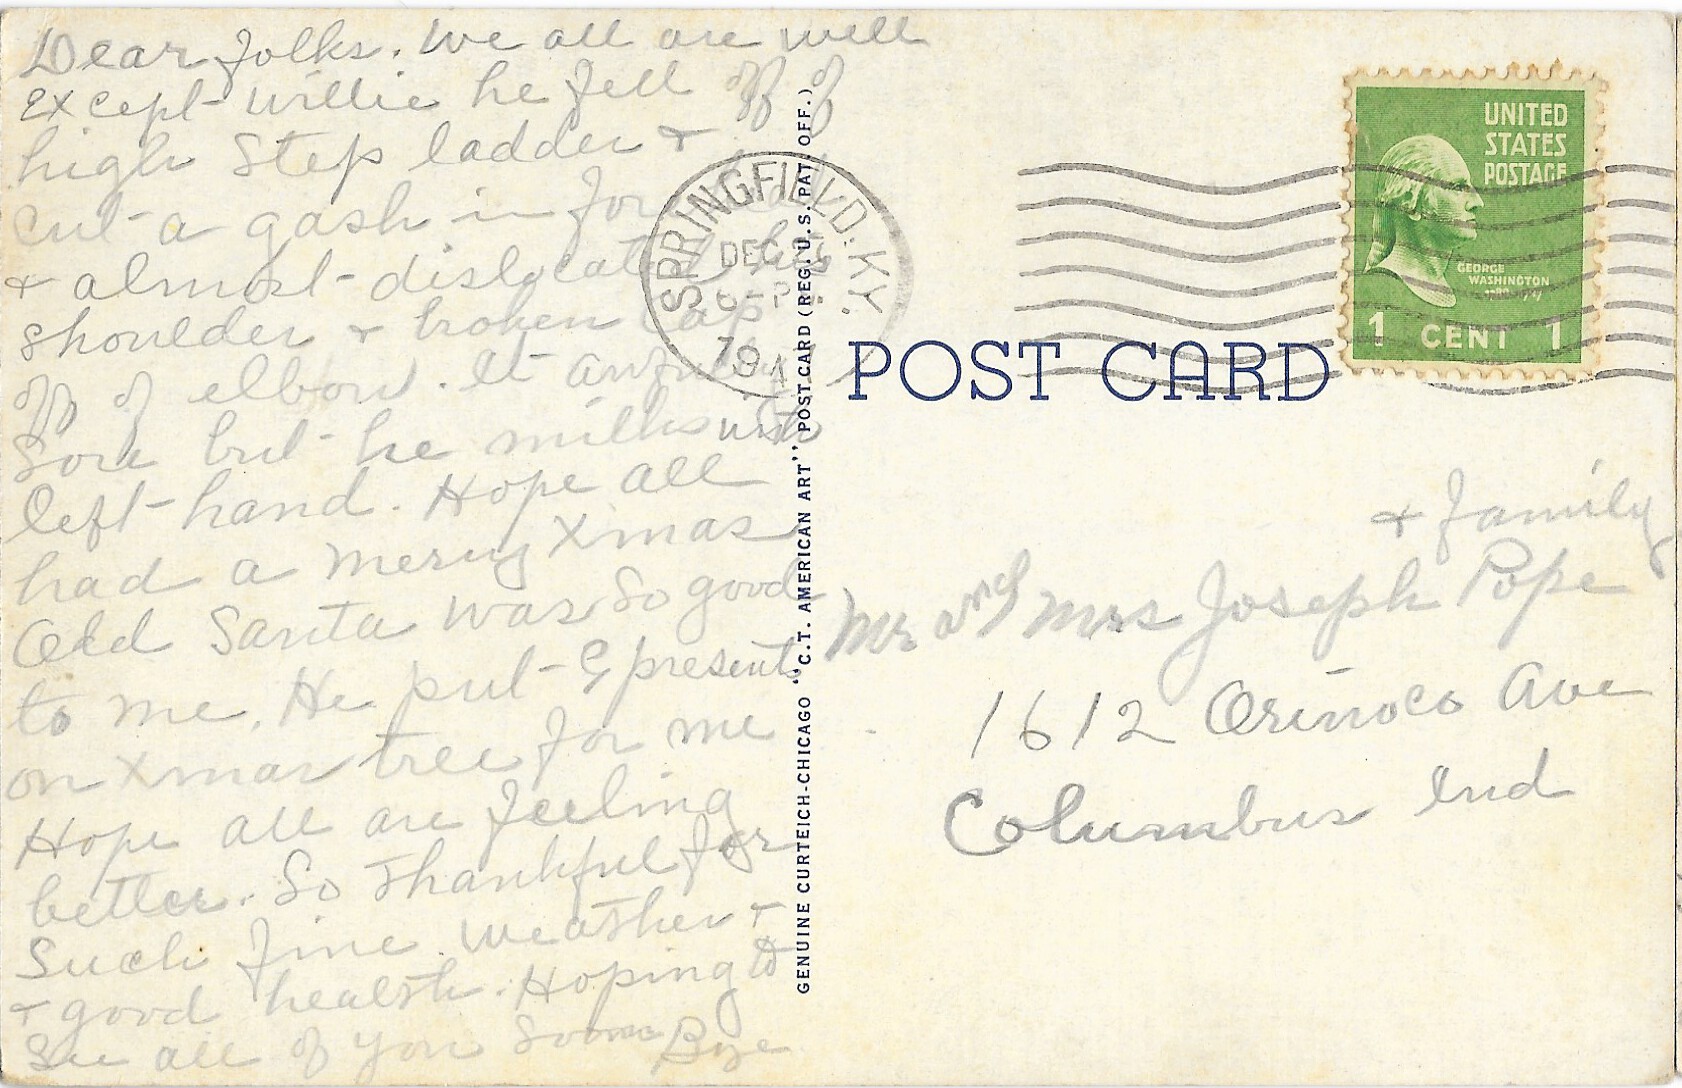 Dear folks. We all are well
Except Willie he fell off of
high step ladder +
cut a gash in forehead
+ almost dislocated his
shoulder + broken cap
off of elbow. It awfully
Sore but he milks with
left hand. Hope all
had a merry Xmas
Old Santa was so good
to me. He put 9 presents
on Xmas tree for me
Hope all are feeling
better. So thankful for
Such fine weather +
+ good health. Hoping to
See all of you soon Bye
GENUINE CURTEICH-CHICAGO "C.T. AMERICAN ART" POST CARD (REG. U.S. PAT. OFF.)
SPRINGFIELD, KY.
DEC 26
6-PM
194
UNITED
STATES
POSTAGE
GEORGE
WASHINGTON
1 CENT 1
POST CARD
+ family
Mr and Mrs Joseph Pope
1612 Orinoco Ave
Columbus Ind